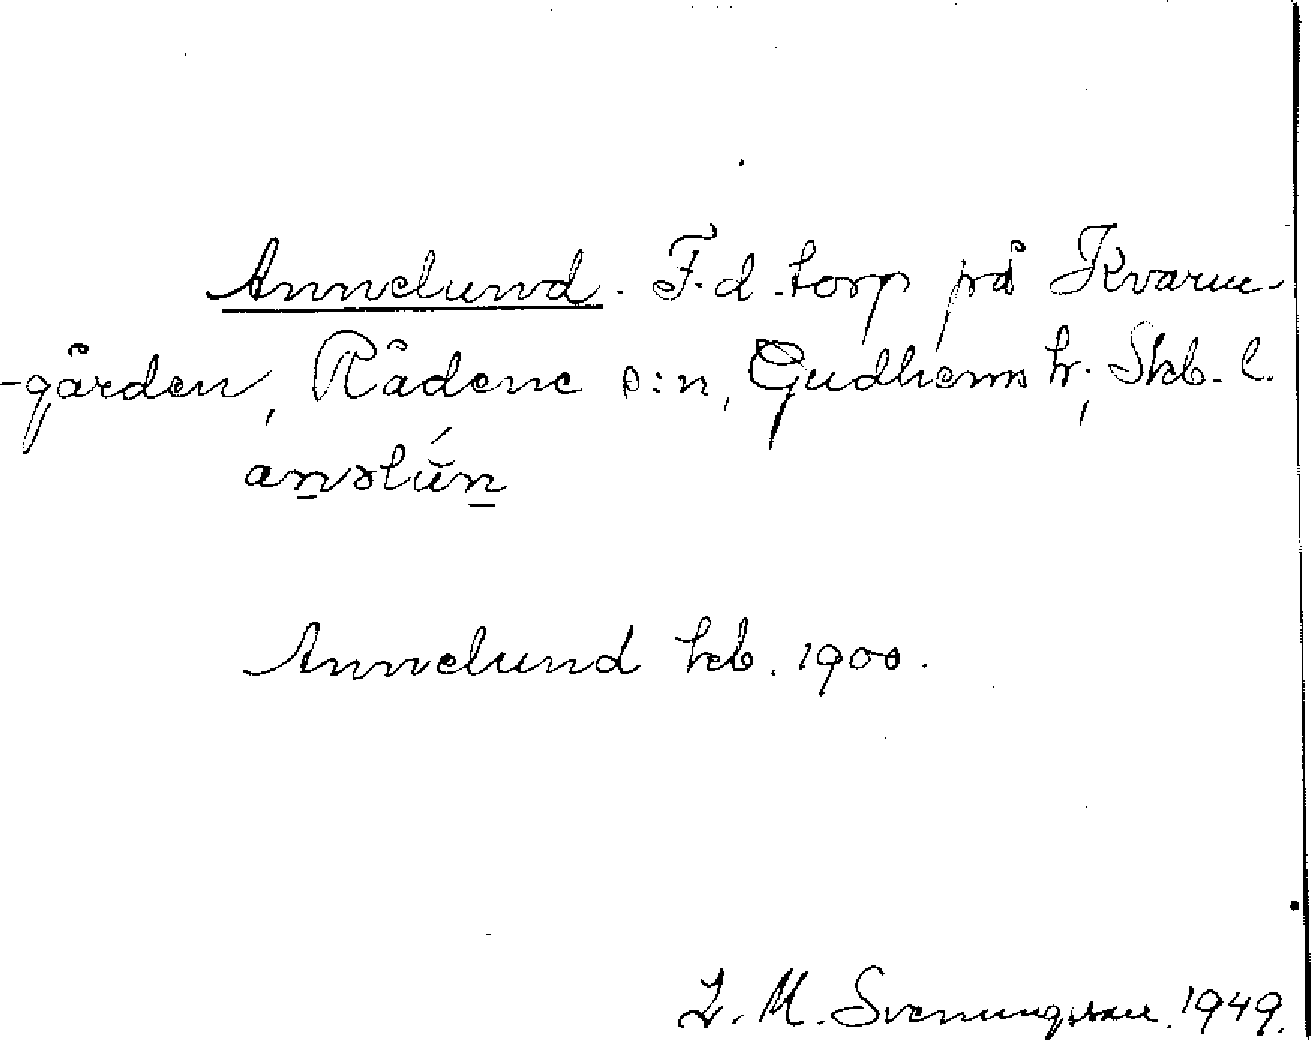 Annelund. F.d. torp på Kvarn-
-gården, Rådene s:n, Gudhems hr, Skb. l.
anəlún
Annelund hcb. 1900.
L. M. Svenungsson. 1949.